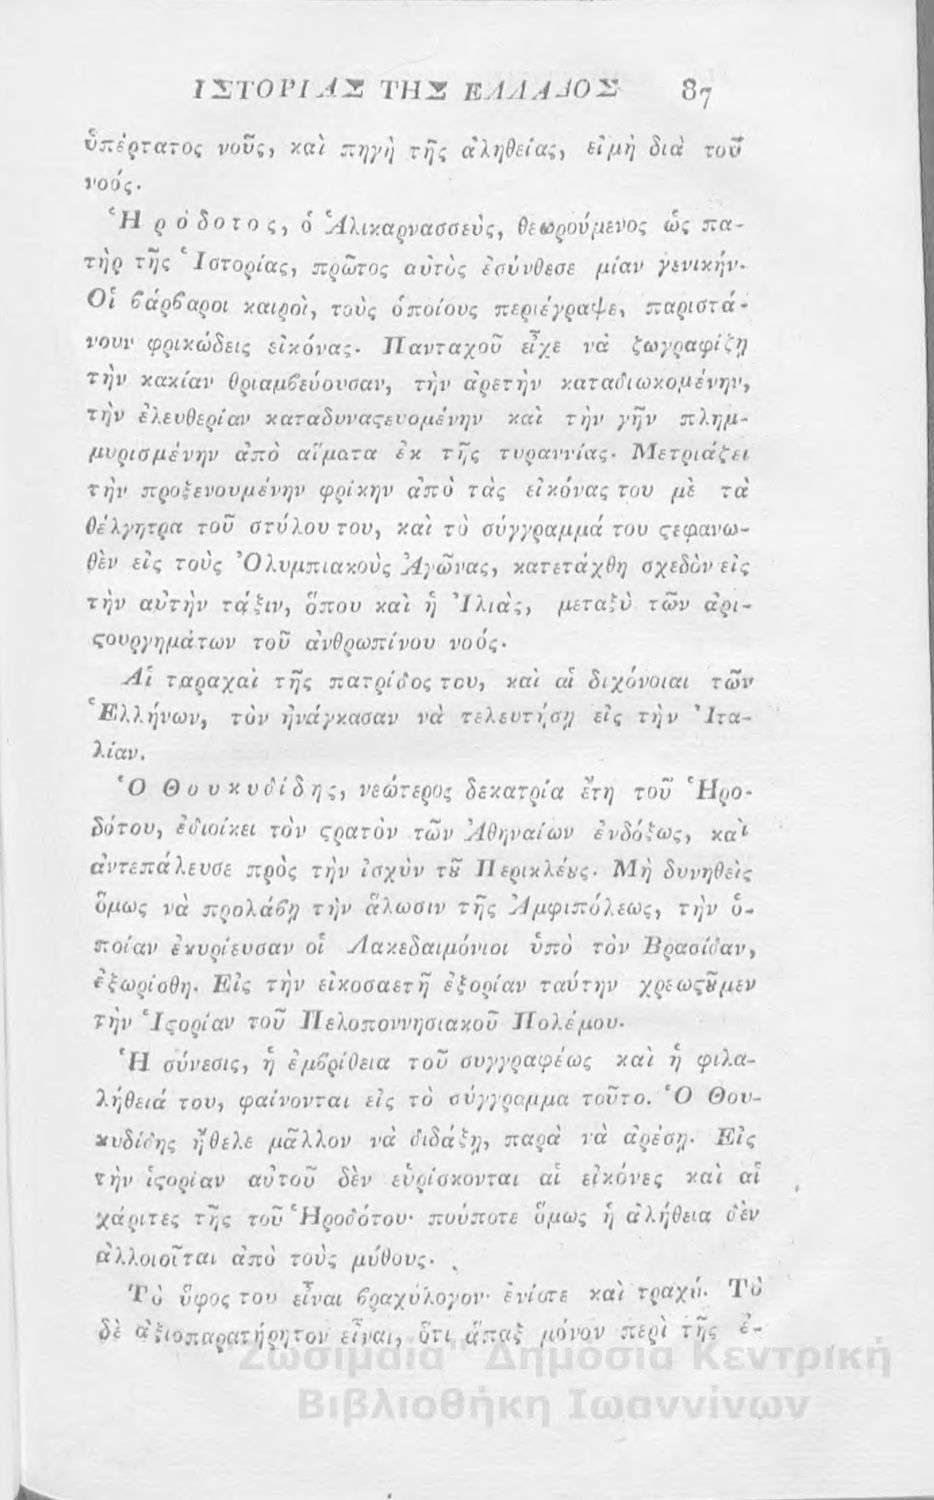 ΙΣΤΟΡΙΑΣ ΤΗΣ ΕΛΛΑΔΟΣ 87
ὑπέρτατος νοῦς, καὶ πηγὴ τῆς ἀληθείας, εἰμὴ διὰ τοῦ
νοός.
Ἡρόδοτος, ὁ Ἁλικαρνασσεὺς, θεωρούμενος ὡς πα-
τὴρ τῆς Ἱστορίας, πρῶτος αὐτὸς ἐσύνθεσε μίαν γενικήν.
Οἱ ϐάρϐαροι καιροὶ, τοὺς ὁποίους περιέγραψε, παριστά-
νουν φρικώδεις εἰκόνας. Πανταχοῦ εἶχε νὰ ζωγραφίζῃ
τὴν κακίαν θριαμϐεύουσαν, τὴν ἀρετὴν καταδιωκομένην,
τὴν ἐλευθερίαν καταδυναϛευομένην καὶ τὴν γῆν πλημ-
μυρισμένην ἀπὸ αἵματα ἐκ τῆς τυραννίας. Μετριάζει
τὴν προξενουμένην φρίκην ἀπὸ τὰς εἰκόνας του μὲ τὰ
θέλγητρα τοῦ στύλου του, καὶ τὸ σύγγραμμά του ϛεφανω-
θὲν εἰς τοὺς Ὀλυμπιακοὺς Ἀγῶνας, κατετάχθη σχεδὸν εἰς
τὴν αὐτὴν τάξιν, ὅπου καὶ ἡ Ἰλιὰς, μεταξὺ τῶν ἀρι-
ϛουργημάτων τοῦ ἀνθρωπίνου νοός.
Αἱ ταραχαὶ τῆς πατρίδος του, καὶ αἱ διχόνοιαι τῶν
Ἑλλήνων, τὸν ἠνάγκασαν νὰ τελευτήσῃ εἰς τὴν Ἰτα-
λίαν.
Ὁ Θουκυδίδης, νεώτερος δεκατρία ἔτη τοῦ Ἡρο-
δότου, ἐδιοίκει τὸν ϛρατὸν τῶν Ἀθηναίων ἐνδόξως, καὶ
ἀντεπάλευσε πρὸς τὴν ἰσχὺν τȣ͂ Περικλέȣς. Μὴ δυνηθεὶς
ὅμως νὰ προλάϐῃ τὴν ἅλωσιν τῆς Ἀμφιπόλεως, τὴν ὁ-
ποίαν ἐκυρίευσαν οἱ Λακεδαιμόνιοι ὑπὸ τὸν Βρασίδαν,
ἐξωρίσθη. Εἰς τὴν εἰκοσαετῆ ἐξορίαν ταύτην χρεωϛȣ͂μεν
τὴν Ἱϛορίαν τοῦ Πελοποννησιακοῦ Πολέμου.
Ἡ σύνεσις, ἡ ἐμϐρίθεια τοῦ συγγραφέως καὶ ἡ φιλα-
λήθειά του, φαίνονται εἰς τὸ σύγγραμμα τοῦτο. Ὁ Θου-
κυδίδης ἤθελε μᾶλλον νὰ διδάξῃ, παρὰ νὰ ἀρέσῃ. Εἰς
τὴν ἱϛορίαν αὐτοῦ δὲν εὑρίσκονται αἱ εἰκόνες καὶ αἱ
χάριτες τῆς τοῦ Ἡροδότου· πούποτε ὅμως ἡ ἀλήθεια δὲν
ἀλλοιοῖται ἀπὸ τοὺς μύθους.
Τὸ ὕφος του εἶναι ϐραχύλογον· ἐνίοτε καὶ τραχύ. Τὸ
δὲ ἀξιοπαρατήρητον εἶναι, ὅτι ἅπαξ μόνον περὶ τῆς ἐ-
"Ζωσιμαία" Δημόσια Κεντρική
Βιβλιοθήκη Ιωαννίνων